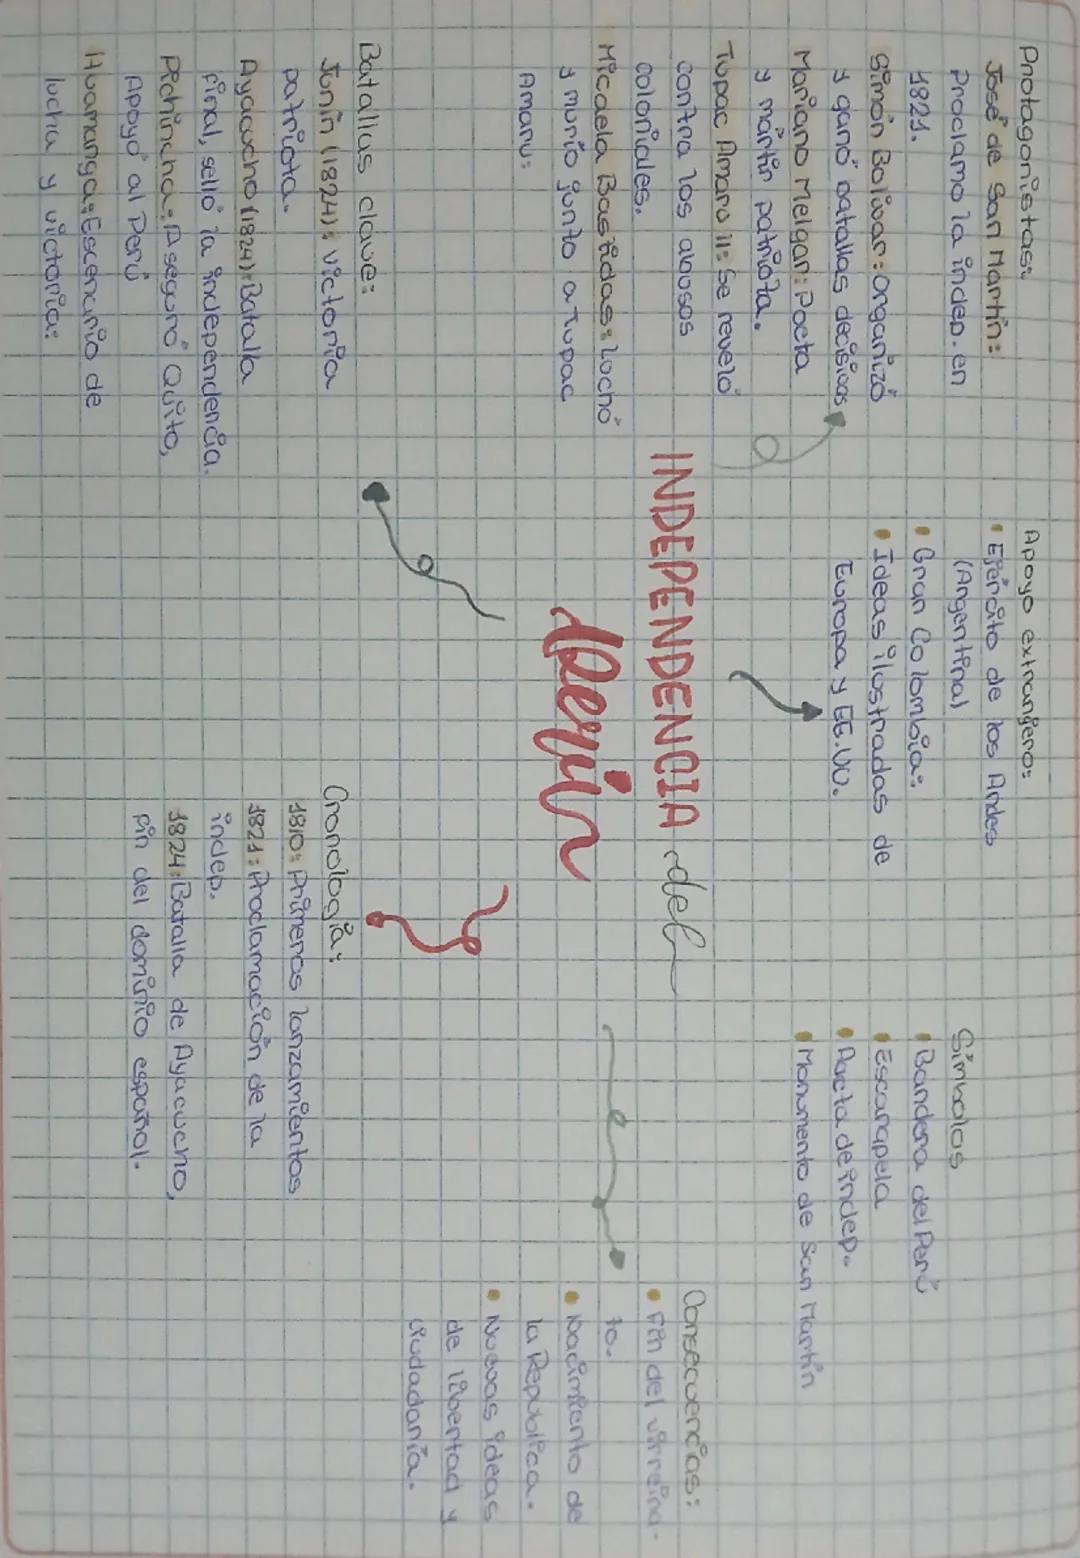 Protagonistas:
José de San Martín:
Proclamo la indep. en
1821.
Simón Bolívar: organizó
y ganó batallas decisivas
Mariano Melgar: Poeta
y mártir patriota.
Tupac Amaro II: Se reveló
contra los abusos
coloniales.
Micaela Bastidas: Luchó
y murió junto a Tupac
Amaru:
Batallas clave:
Junín (1824): victoria
patriota.
Ayacucho (1824): Batalla
final, selló la independencia.
Pichincha: Aseguró Quito,
Apoyó al Perú
Huamanga: Escenario de
lucha y victoria:
Apoyo extranjero:
• Ejército de los Andes
(Argentina)
• Gran Colombia:
• Ideas ilostradas de
Europa y EE.UU.
INDEPENDENCIA del
Perún
Cronología:
1810: Primeros lanzamientos
1821: Proclamación de la
indep.
1824: Batalla de Ayacucho,
fin del dominio español.
Símbolos
• Bandera del Perú
• Escarapela
• Aacta de indep.
• Monumento de San Martín
Consecuencias:
• Fin del virreina-
to.
• Nacimiento de
la República.
• Nuevas ideas
de libertad y
ciudadanía.